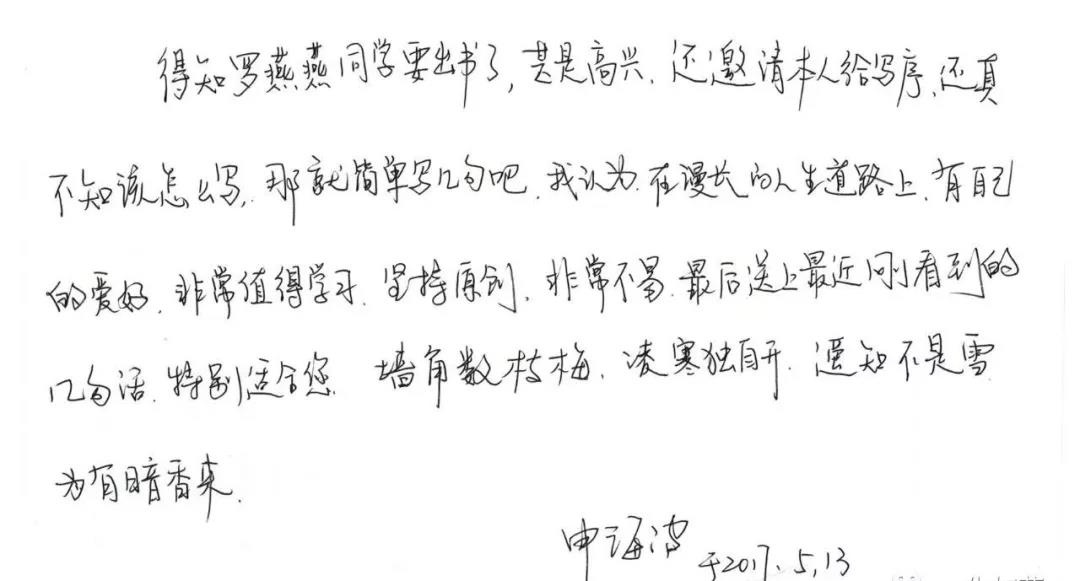 得知罗燕燕同学要出书了,甚是高兴.还邀请本人给写序.还真
不知该怎么写.那就简单写几句吧.我认为.在漫长的人生道路上.有自己
的爱好.非常值得学习.坚持原创.非常不易.最后送上最近刚看到的
几句话.特别适合您.墙角数枝梅.凌寒独自开.遥知不是雪
为有暗香来.
申海波 于2017.5.13